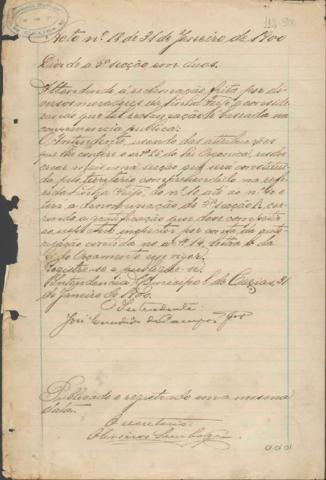 Acto nº 18 de 31 de Janeiro de 1900
Divide a 5ª secção em duas.
Attendendo á reclamação feita por di-
versos moradores da linha Feijó e conside-
rando que tal reclamação é baseada na
conveniencia publica:
O Intendente, usando das attribuições
que lhe confere o art. da lei Organica, resolve
crear mais uma secção que será constitui-
da pelo territorio comprehendido na re-
ferida linha Feijó, do nº ate ao nº
e terá a denominação de secção,
a gratificação que deve competir
ao respectivo inspector por conta da quota
consignada no art. 14, letra b da
lei do Orçamento em vigor.
Registre-se e publique-se.
Intendencia Municipal de Caxias, 31
de Janeiro de 1900.
Intendente:
José Candido de Campos Jor
Publicado e registrado na mesma
data.
O secretario: